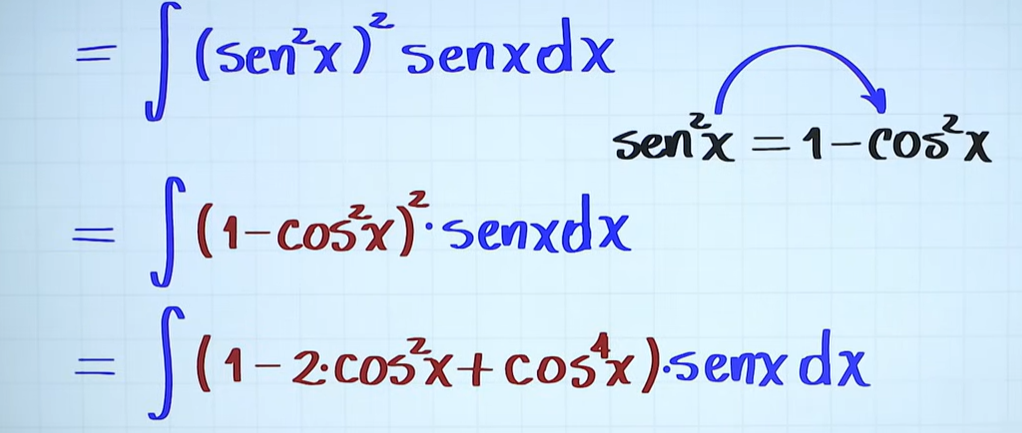 = ∫ (sen²x)² senx dx
sen²x = 1 - cos²x
= ∫ (1 - cos²x)² · senx dx
= ∫ (1 - 2·cos²x + cos⁴x) · senx dx